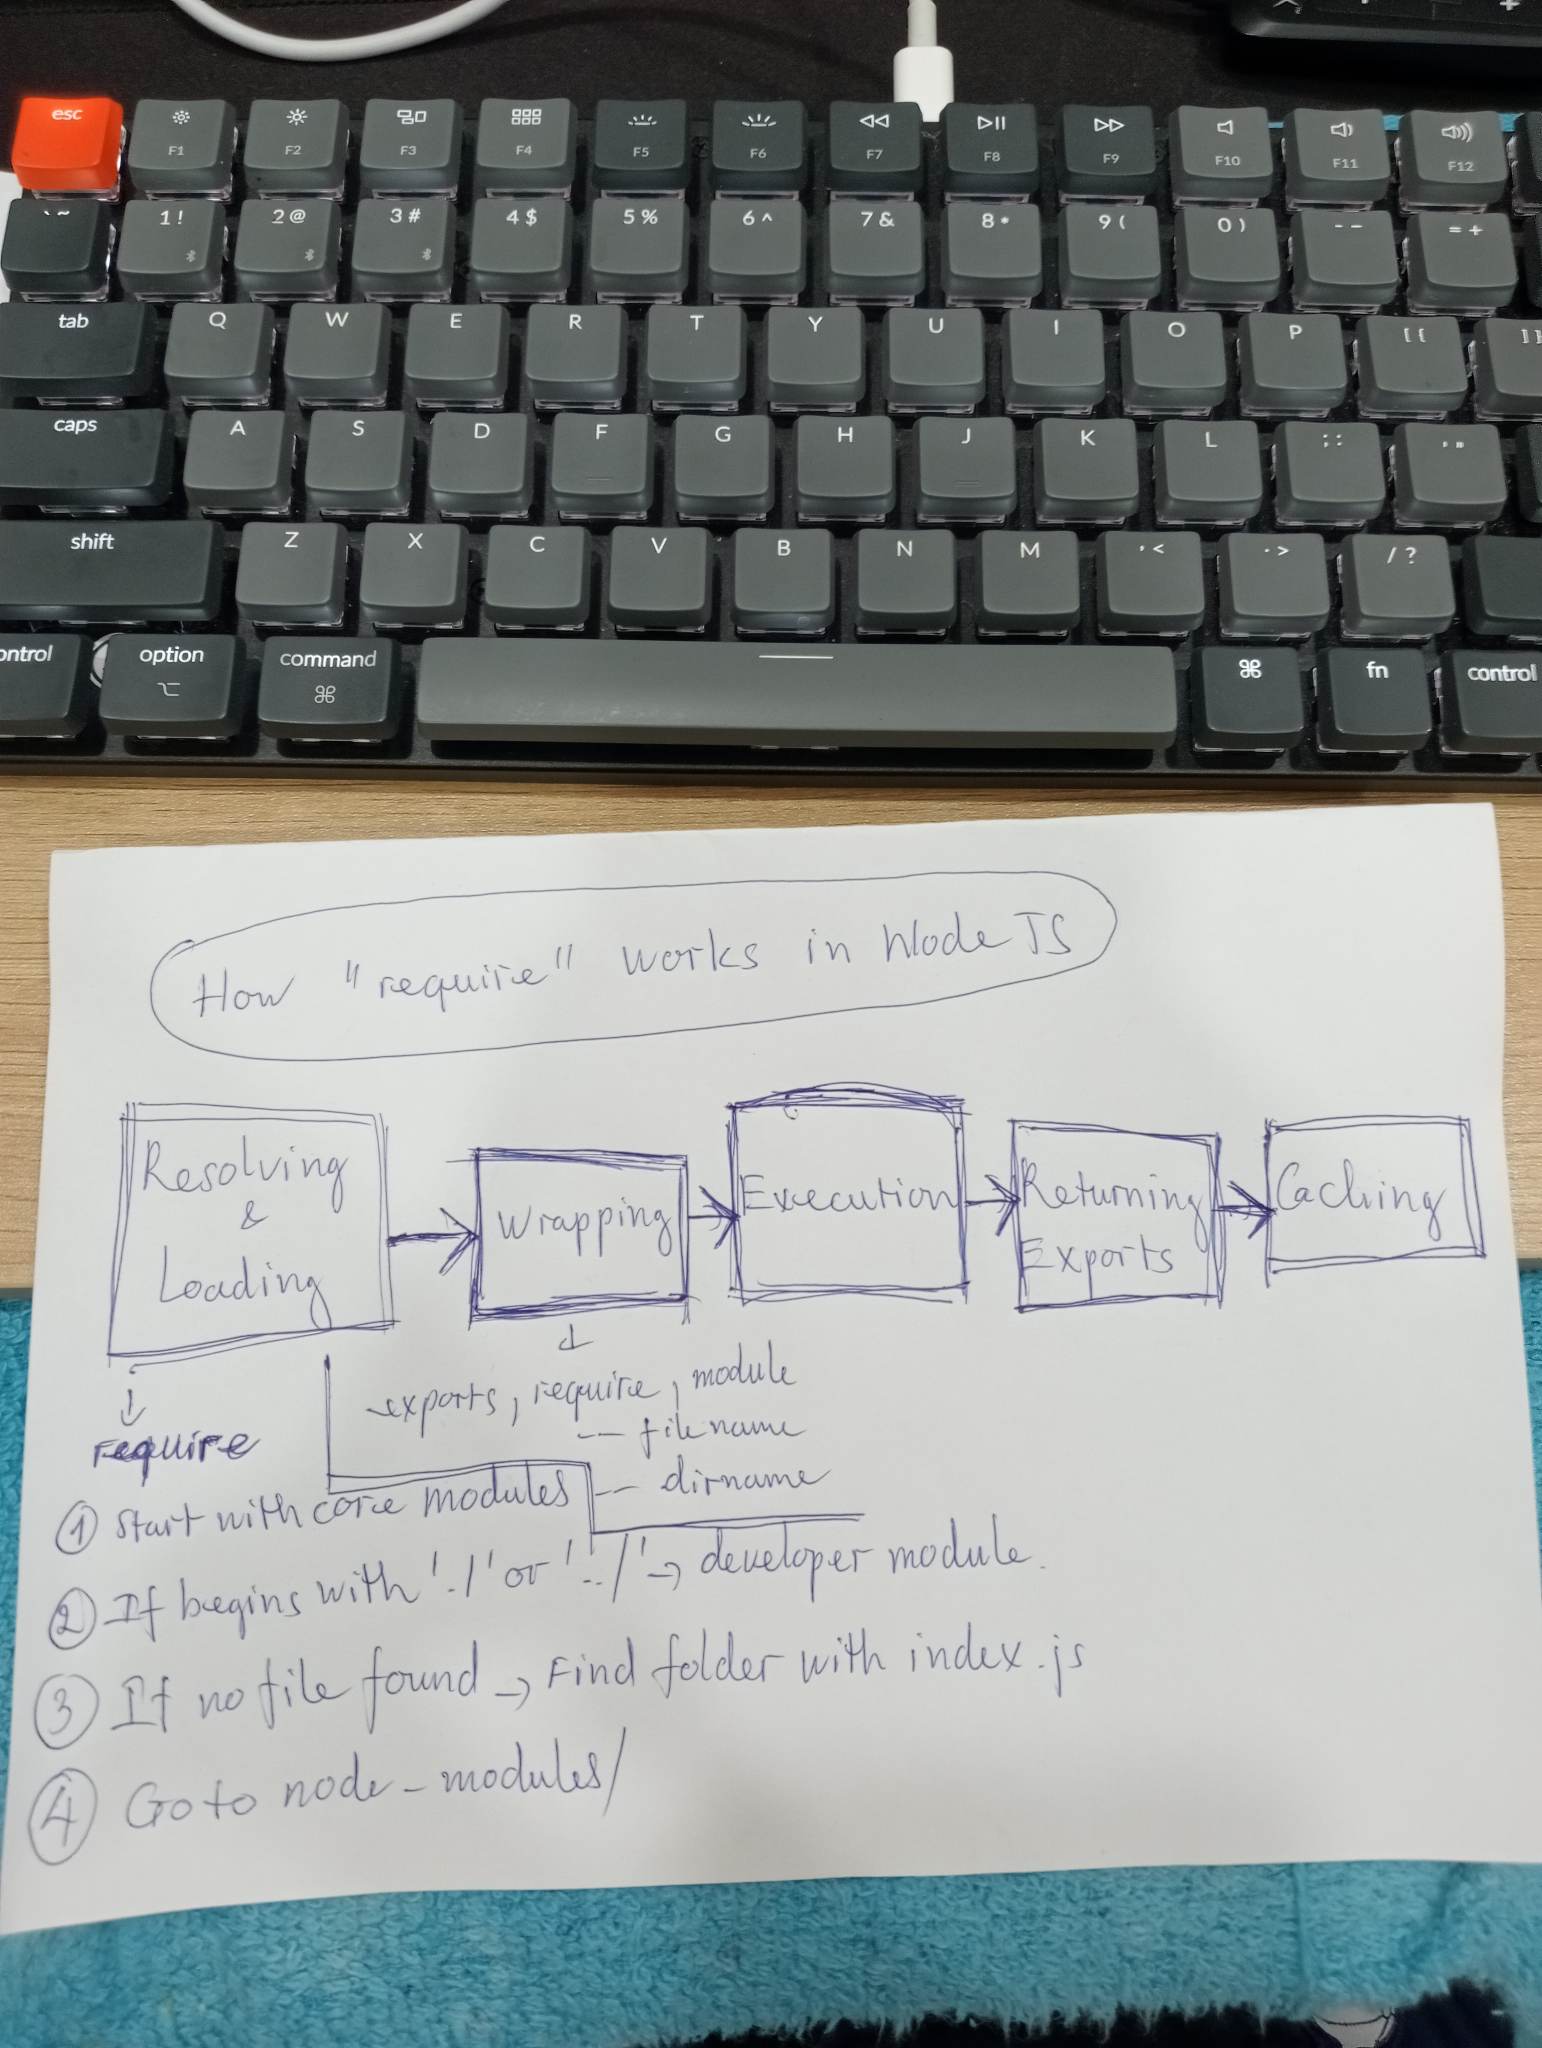 esc F1 F2 F3 F4 F5 F6 F7 F8 F9 F10 F11 F12
` ~ 1 ! 2 @ 3 # 4 $ 5 % 6 ^ 7 & 8 * 9 ( 0 ) - - = +
tab Q W E R T Y U I O P [ { ] }
caps A S D F G H J K L ; : ' "
shift Z X C V B N M , < . > / ?
ontrol option command ⌘ ⌘ fn control
How "require" works in Node JS
Resolving
&
Loading
Wrapping
Execution
Returning
Exports
Caching
require
exports, require, module
-- filename
-- dirname
① Start with core modules
② If begins with './' or '../' → developer module.
③ If no file found → Find folder with index.js
④ Go to node_modules/